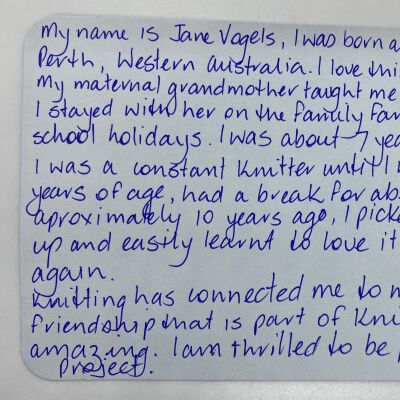 My name is Jane Vogels, I was born a
Perth, Western Australia. I love thi
My maternal grandmother taught me
I stayed with her on the family far
school holidays. I was about 7 yea
I was a constant knitter until I
years of age, had a break for ab
aproximately 10 years ago, I pick
up and easily learnt to love it
again.
Knitting has connected me to m
friendship that is part of Kni
amazing. I am thrilled to be p
project.